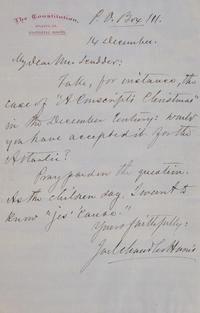 The Constitution,
P. O. Box 111.
14 December.
My dear Mr. Scudder:
Take, for instance, the
case of "A Conscript's Christmas"
in the December Century: would
you have accepted it for the
Atlantic?
Pray pardon the question.
As the children say, I want to
know "jes' 'cause."
Yours faithfully:
Joel Chandler Harris